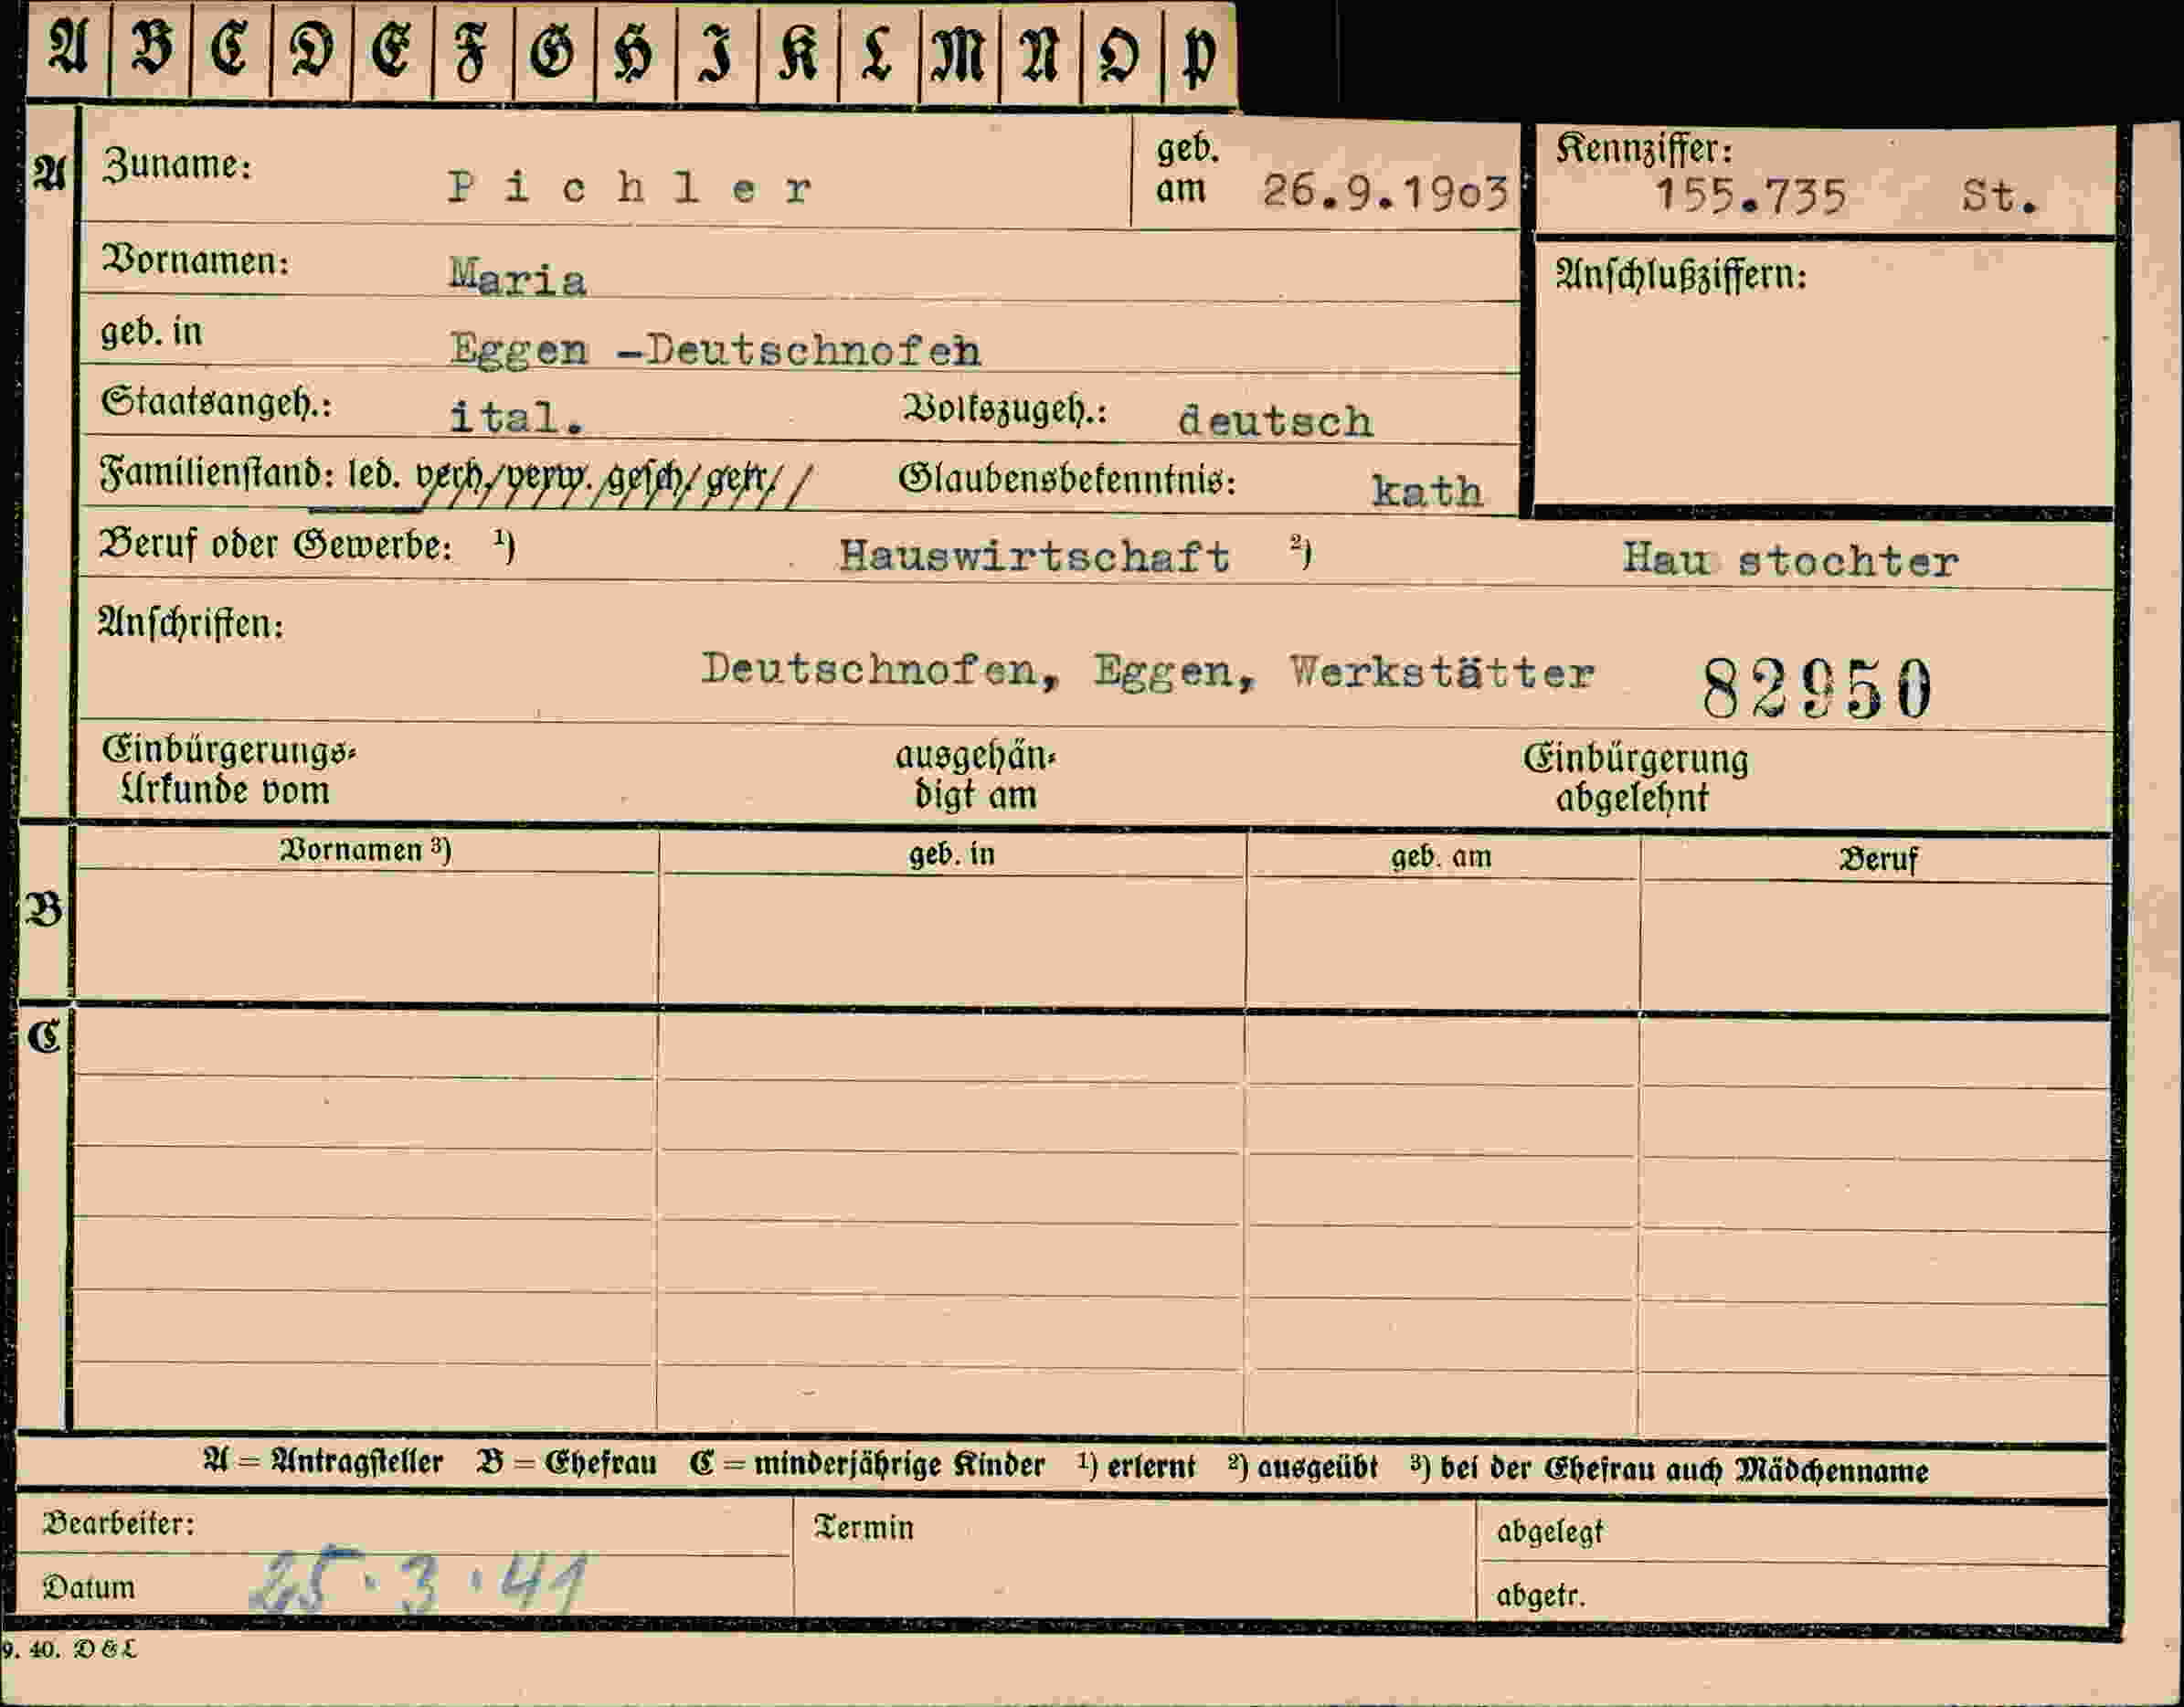 A B C D E F G H I K L M N O P
A Zuname: Pichler geb. am 26.9.1903 Kennziffer: 155.735 St.
Vornamen: Maria Anschlußziffern:
geb. in Eggen -Deutschnofen
Staatsangeh.: ital. Volkszugeh.: deutsch
Familienstand: led. verh./verw. gesch/getr/ Glaubensbekenntnis: kath
Beruf oder Gewerbe: 1) Hauswirtschaft 2) Hau stochter
Anschriften:
Deutschnofen, Eggen, Werkstätter 82950
Einbürgerungs- ausgehän- Einbürgerung
Urkunde vom digt am abgelehnt
Vornamen 3) geb. in geb. am Beruf
B
C
A = Antragsteller B = Ehefrau C = minderjährige Kinder 1) erlernt 2) ausgeübt 3) bei der Ehefrau auch Mädchenname
Bearbeiter: Termin abgelegt
Datum 25.3.41 abgetr.
9. 40. D & L